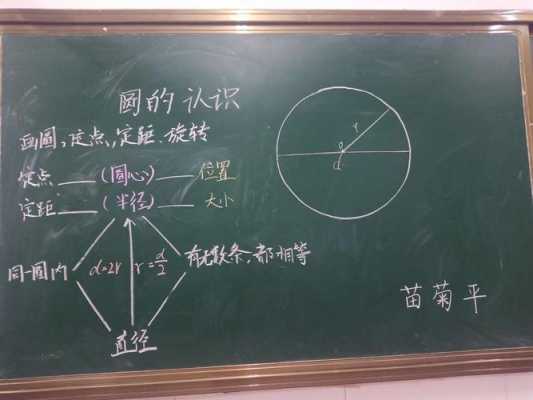 圆的认识
画圆：定点，定距、旋转
定点——(圆心)——位置
定距——(半径)——大小
同一圆内
d=2r
r=d/2
有无数条，都相等
直径
r
o
d
苗菊平